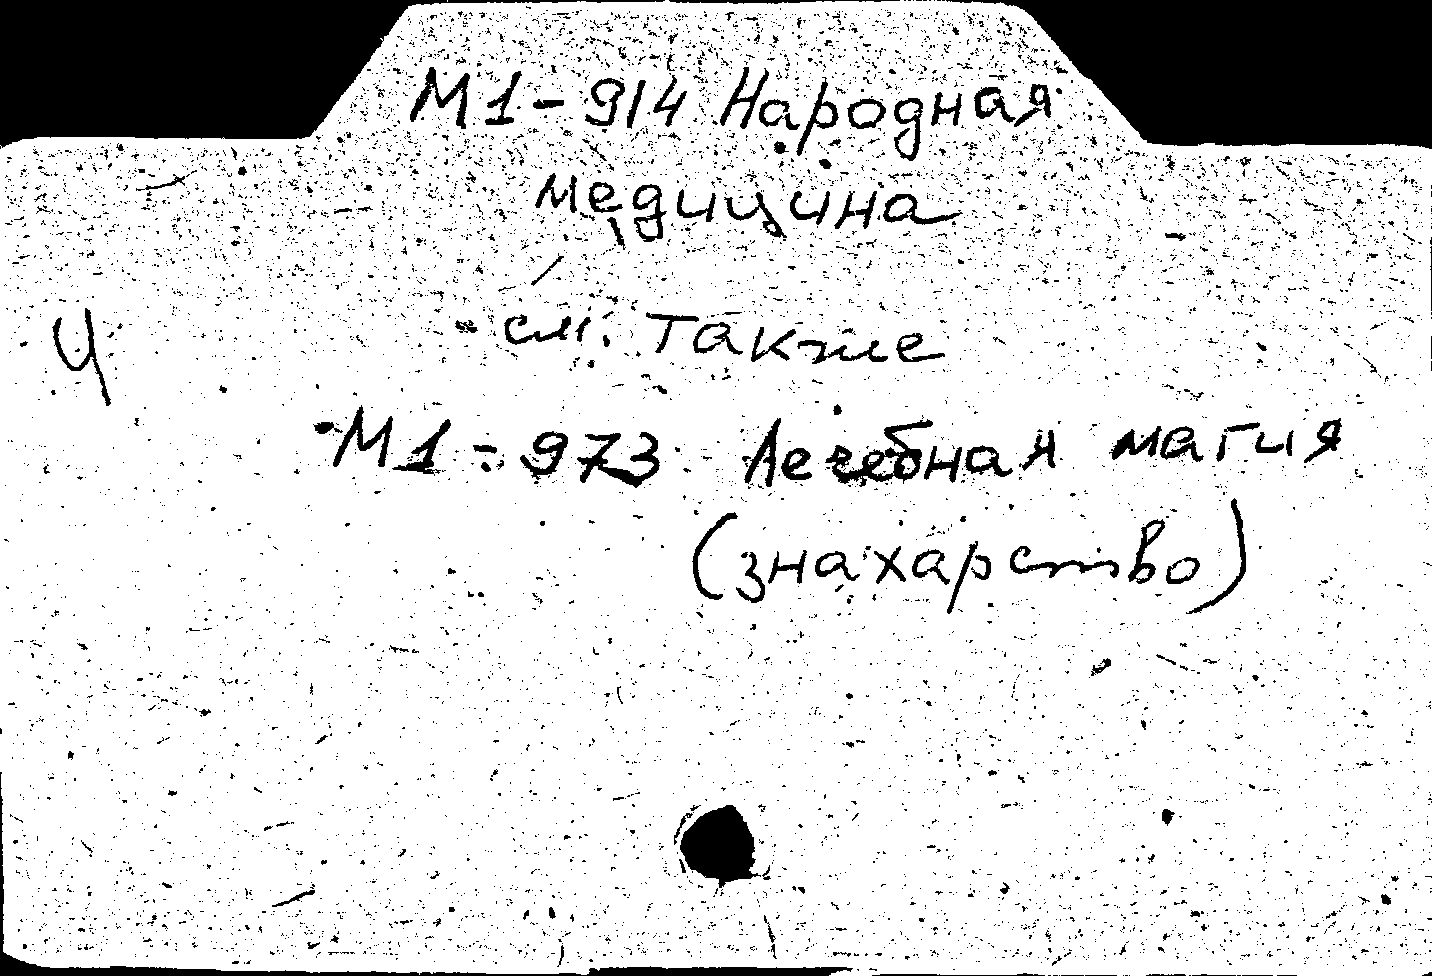 М1-914 Народная
медицина
см. также
Ч
М1-973 Лечебная магия
(знахарство)